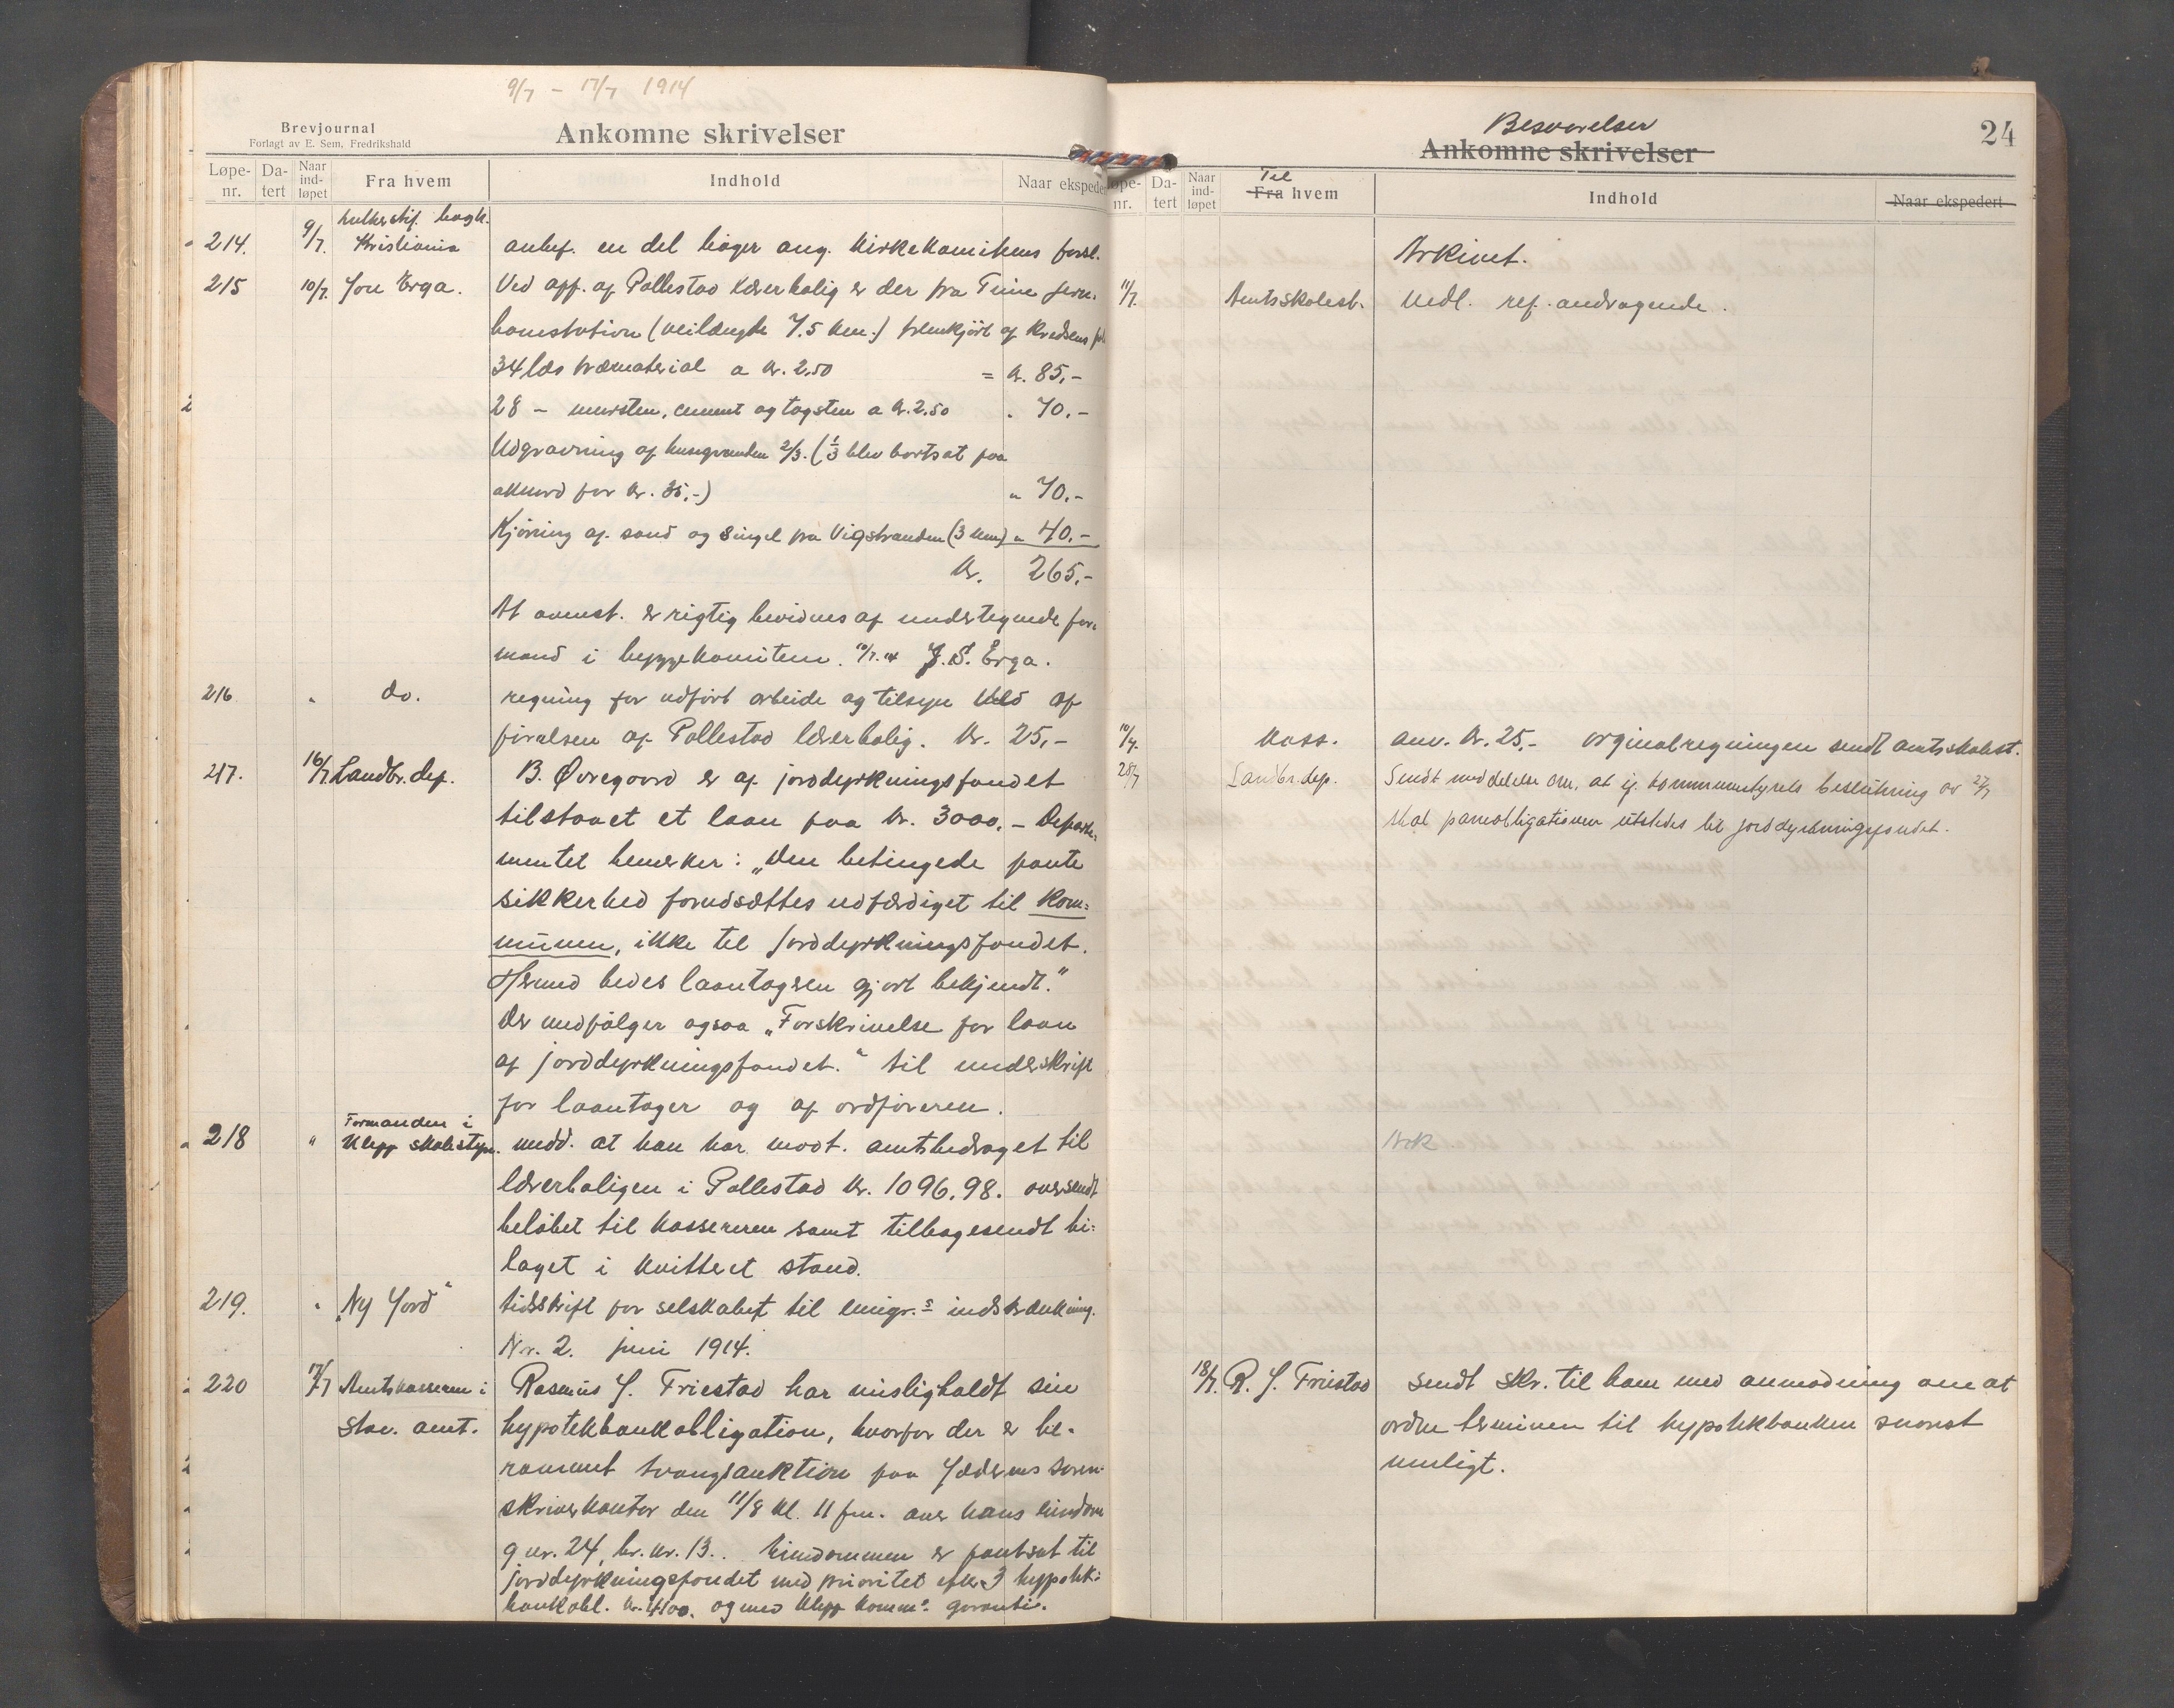 9/7 – 17/7 1914
Brevjournal
Forlagt av E. Sem, Fredrikshald
Ankomne skrivelser
Løpe-nr. Da-tert Naar ind-løpet Fra hvem Indhold Naar ekspeder
214. 9/7. Kristiania anbef. en del bøger ang. Kirkekomiteens forsl.
215 10/7. Jon Erga. Ved opf. af Pollestad lærerbolig er der fra Time jern-
banestation (veilængde 7.5 km.) fremkjørt af Kredsens
34 læs træmaterial a kr. 2.50 = kr. 85,-
28 – mursten, cement og tagsten a kr. 2.50 " 70.-
Udgravning af husgrunden 2/3. (1/3 blev bortsat paa
akkord for kr. 35,-) " 70.-
Kjøring af sand og singel fra Vigstranden (3 km) " 40.-
kr. 265,-
At ovenst. er rigtig bevidnes af undertegnede for-
mand i byggekomiteen. 10/7.14 J. S. Erga.
216 " do. regning for udført arbeide og tilsyn ved op
førelsen af Pollestad lærerbolig. kr. 25,-
217. 16/7 Landbr. dep. B. Øvregaard er af jorddyrkningsfondet
tilstaaet et laan paa kr. 3000,- Departe-
mentet bemerker: „Den betingede pante
sikkerhed forudsættes udfærdiget til kom=
munen, ikke til jorddyrkningsfondet.
Herved bedes laantageren gjort bekjendt."
Der medfølger ogsaa „Forskrivelse for laan
af jorddyrkningsfondet." til underskrift
for laantager og af ordføreren.
218 " Formanden i Klepp skolestyre. medd. at han har modt. amtsbidraget til
lærerboligen i Pollestad kr. 1096.98. oversendt
beløbet til kassereren samt tilbagesendt bi=
laget i kvitteret stand.
219. " „Ny Jord" tidsskrift for selskabet til emigr.s indskrænkning.
Nr. 2. juni 1914.
220 17/7 Amtskassereren i Rasmus J. Friestad har misligholdt sin
Stav. amt. hypotekbankobligation, hvorfor der er be-
rammet tvangsauktion paa Jæderens soren-
skriverkontor den 11/8 kl. 11 fm. over hans eiendom
g nr. 24, br. nr. 13.. Eiendommen er pantsat til
jorddyrkningsfondet med prioritet efter 3 hypotek=
bankobl. kr. 4100. og med Klepp komm.s garanti.
Besvarelser
Ankomne skrivelser
24
Løpe-nr. Da-tert Naar ind-løpet Til Fra hvem Indhold Naar ekspedert
Arkivet.
11/7. Amtsskolest. Vedl. ref. andragende.
Kass. anv. kr. 25,- orginalregningen sendt amtsskolest.
28/7 Landbr. dep. Sendt meddelelse om, at ig. kommunestyrets beslutning av 27/7
skal panteobligationen utstedes til jorddyrkningsfondet.
Ark
18/7. R. J. Friestad Sendt skr. til ham med anmodning om at
ordne terminen til hypotekbanken snarest
muligt.